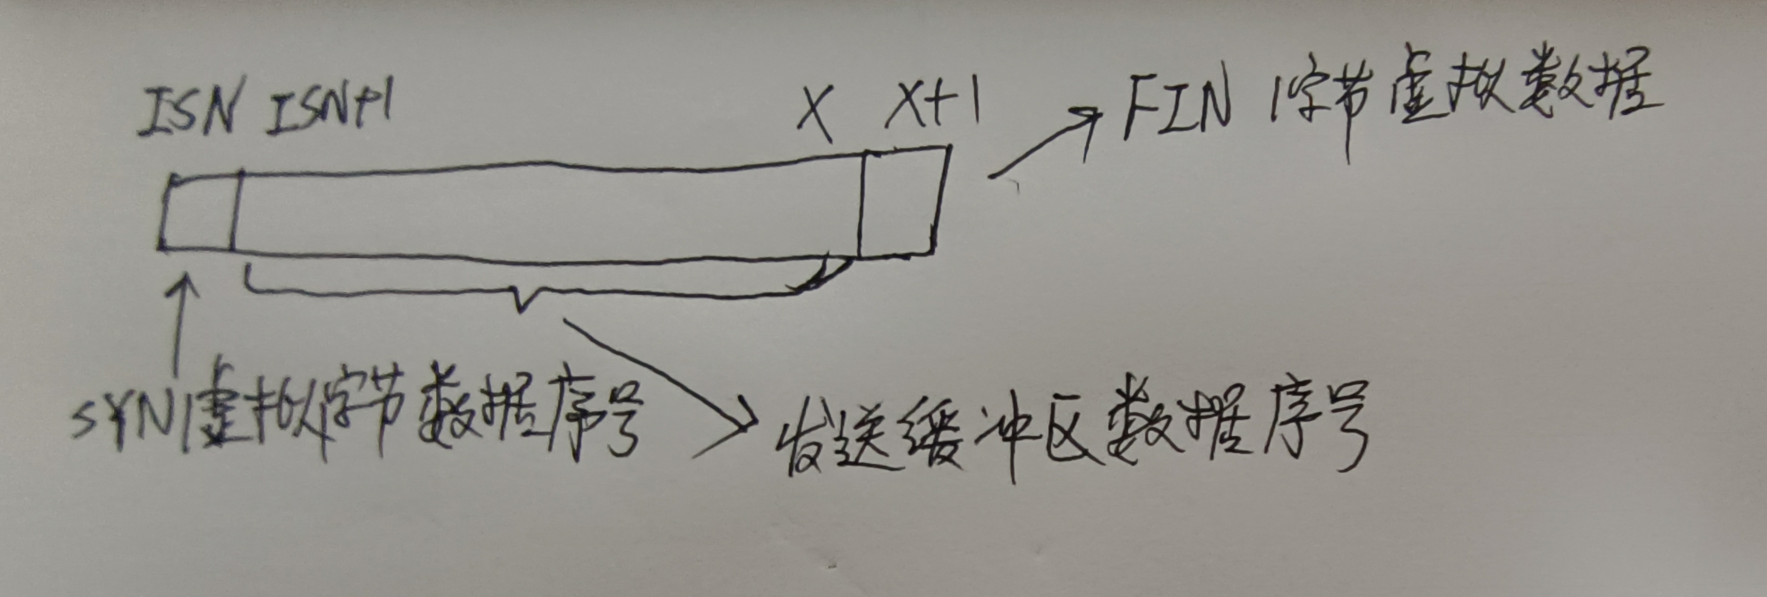 ISN ISN+1 X X+1 FIN 1字节虚拟数据
SYN1虚拟字节数据序号
发送缓冲区数据序号